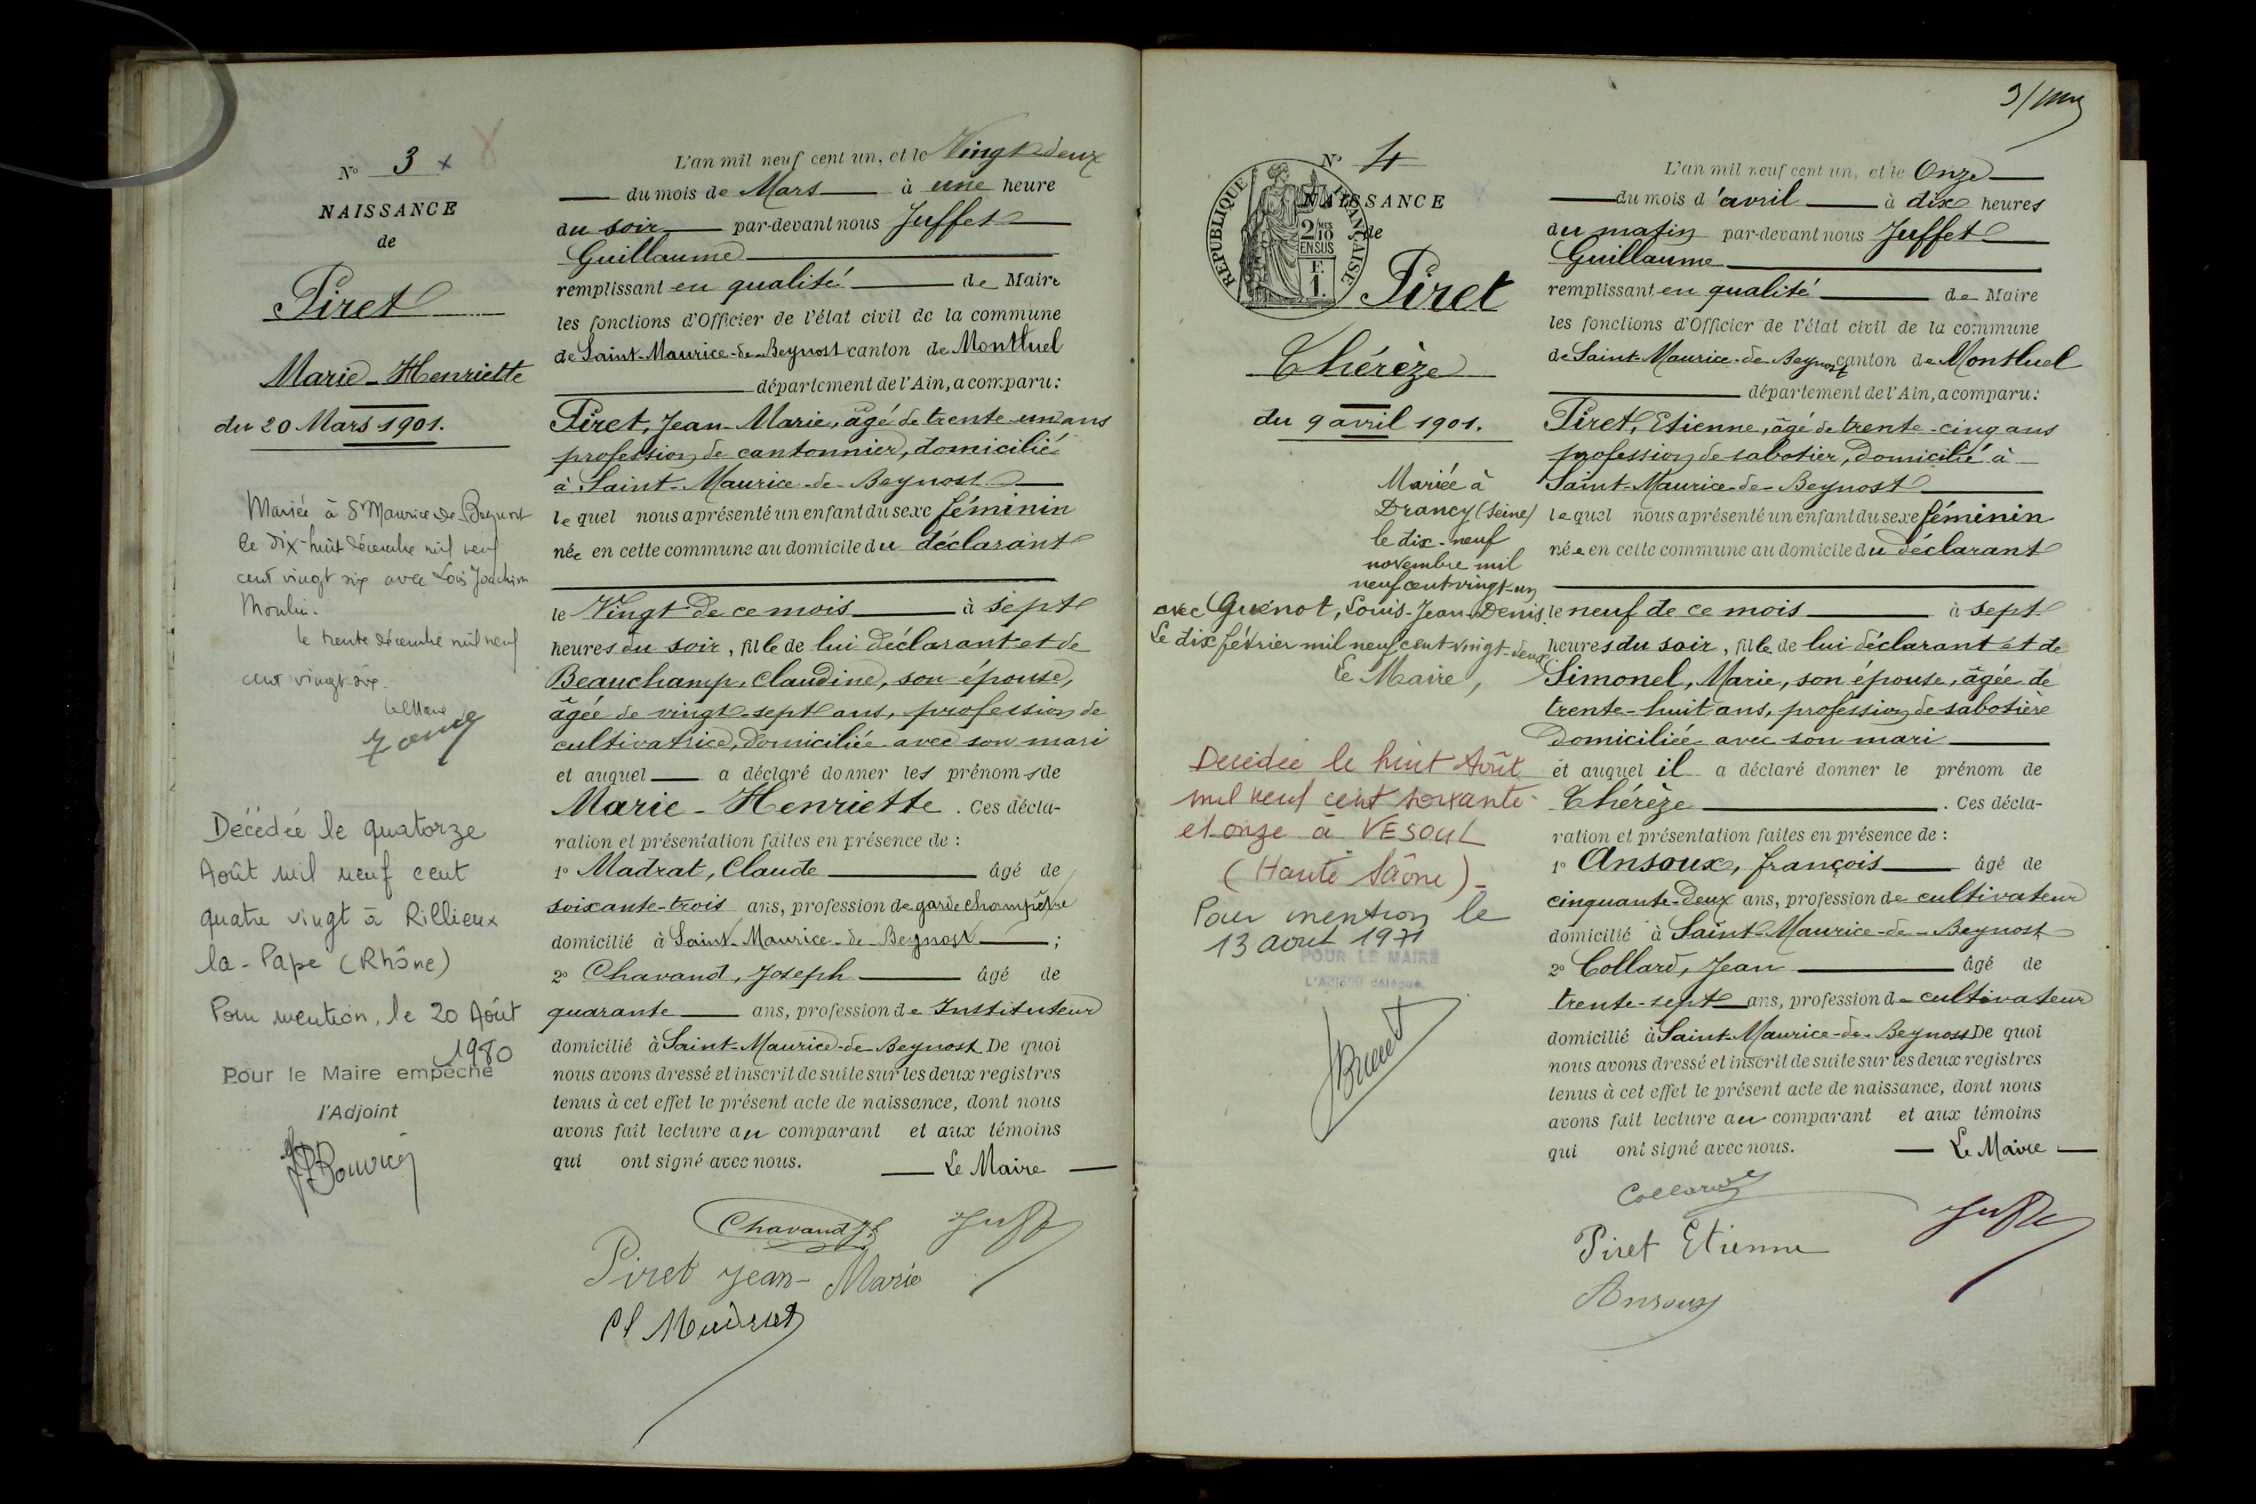 N° 3 x
NAISSANCE
de
Piret
Marie-Henriette
du 20 Mars 1901.
Mariée à St Maurice-de-Beynost
le dix-huit décembre mil neuf
cent vingt six avec Joachim
Moulin.
le trente décembre mil neuf
cent vingt-six.
Le Maire
Décédée le quatorze
Août mil neuf cent
quatre vingt à Rillieux
la-Pape (Rhône)
Pour mention, le 20 Août
1980
Pour le Maire empêché
l'Adjoint
L'an mil neuf cent un, et le Vingt deux
du mois de Mars à une heure
du soir par-devant nous Juffet
Guillaume
remplissant en qualité de Maire
les fonctions d'Officier de l'état civil de la commune
de Saint-Maurice-de-Beynost canton de Montluel
département de l'Ain, a comparu:
Piret, Jean-Marie, âgé de trente-un ans
profession de cantonnier, domicilié
à Saint-Maurice-de-Beynost
lequel nous a présenté un enfant du sexe féminin
née en cette commune au domicile du déclarant
le Vingt de ce mois à sept
heures du soir, fille de lui déclarant et de
Beauchamp, Claudine, son épouse,
âgée de vingt-sept ans, profession de
cultivatrice, domiciliée avec son mari
et auquel a déclaré donner les prénoms de
Marie-Henriette. Ces décla-
ration et présentation faites en présence de :
1° Madrat, Claude âgé de
soixante-trois ans, profession de garde champêtre
domicilié à Saint-Maurice-de-Beynost ;
2° Chavand, Joseph âgé de
quarante ans, profession de Instituteur
domicilié à Saint-Maurice-de-Beynost De quoi
nous avons dressé et inscrit de suite sur les deux registres
tenus à cet effet le présent acte de naissance, dont nous
avons fait lecture au comparant et aux témoins
qui ont signé avec nous. Le Maire
Chavand Jh
Piret Jean-Marie
3/
N° 4
NAISSANCE
de
RÉPUBLIQUE FRANÇAISE
2/10 EN SUS
F. 1.
Piret
Thérèze
du 9 avril 1901.
Mariée à
Drancy (Seine)
le dix-neuf
novembre mil
neuf cent vingt-un
avec Guénot, Louis-Jean-Denis.
Le dix février mil neuf cent vingt-deux
Le Maire,
Décédée le huit Août
mil neuf cent soixante
et onze à VESOUL
(Haute Sâone)-
Pour mention le
13 aout 1971
POUR LE MAIRE
L'Adjoint délégué,
L'an mil neuf cent un, et le Onze
du mois d'avril à dix heures
du matin par-devant nous Juffet
Guillaume
remplissant en qualité de Maire
les fonctions d'Officier de l'état civil de la commune
de Saint-Maurice-de-Beynost canton de Montluel
département de l'Ain, a comparu:
Piret, Etienne, âgé de trente-cinq ans
profession de sabotier, domicilié à
Saint-Maurice-de-Beynost
lequel nous a présenté un enfant du sexe féminin
née en cette commune au domicile du déclarant
le neuf de ce mois à sept
heures du soir, fille de lui déclarant et de
Simonel, Marie, son épouse, âgée de
trente-huit ans, profession de sabotière
domiciliée avec son mari
et auquel il a déclaré donner le prénom de
Thérèze. Ces décla-
ration et présentation faites en présence de :
1° Ansoux, françois âgé de
cinquante-deux ans, profession de cultivateur
domicilié à Saint-Maurice-de-Beynost
2° Collard, Jean âgé de
trente-sept ans, profession de cultivateur
domicilié à Saint-Maurice-de-Beynost De quoi
nous avons dressé et inscrit de suite sur les deux registres
tenus à cet effet le présent acte de naissance, dont nous
avons fait lecture au comparant et aux témoins
qui ont signé avec nous. Le Maire
Collard
Piret Etienne
Ansoux